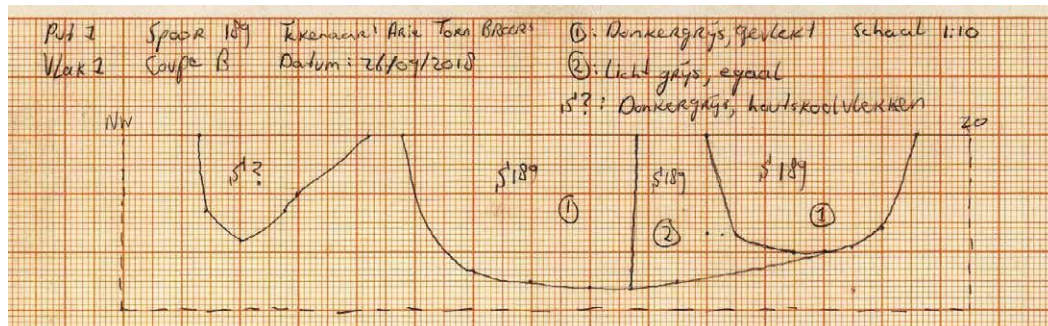 Put 1 Spoor 189 Tekenaar: Arie Torn Broers ①: Donkergrijs, gevlekt Schaal 1:10
Vlak 1 Coupe B Datum: 26/09/2018 ②: Licht grijs, egaal
S?: Donkergrijs, houtskoolvlekken
NW ZO
S? S189 S189 S189
① ② ①